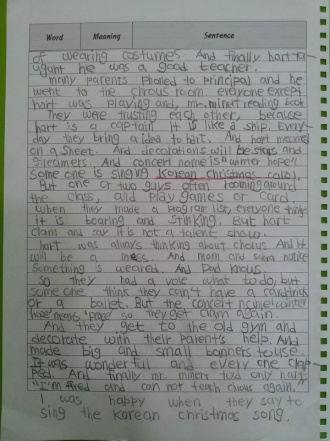 Word Meaning Sentence
of wearing costumes. And finally hart ta-
ught he was a good teacher.
many parents Phoned to principal and he
went to the chrous room. everyone except
hart was playing and, mr. minert reading book
They were trusting each other, because
hart is a captain. it is like a ship. Every-
day they bring a idea to hart. And hart
on a sheet. And decorations will be stars and
streamers. And concert nome is "winter hope"
some one is singing Korean christmas carol.
But one or two guys often around
the class, and playing games or card.
when they make a program list, everyone think
it is boaring and stinking. But hart
clam and say it is not a talent show.
hart was always thinking about chorus. And it
will be a mess. And mom and notice
something is weared. And Dad knows.
so they had a vote what to do, but
some one think they can't have a
or a ballet. But the concert nome winter
hope means "peace" so they get clam again.
And they get to the old gym and
decorate with their parent's help. And
made big and small banners to use.
It was wonderful and every one clap-
Ped. And finally mr. minert told only hart
"I'm fired and can not teach chous again."
I was happy when they say to
sing the Korean christmas song.